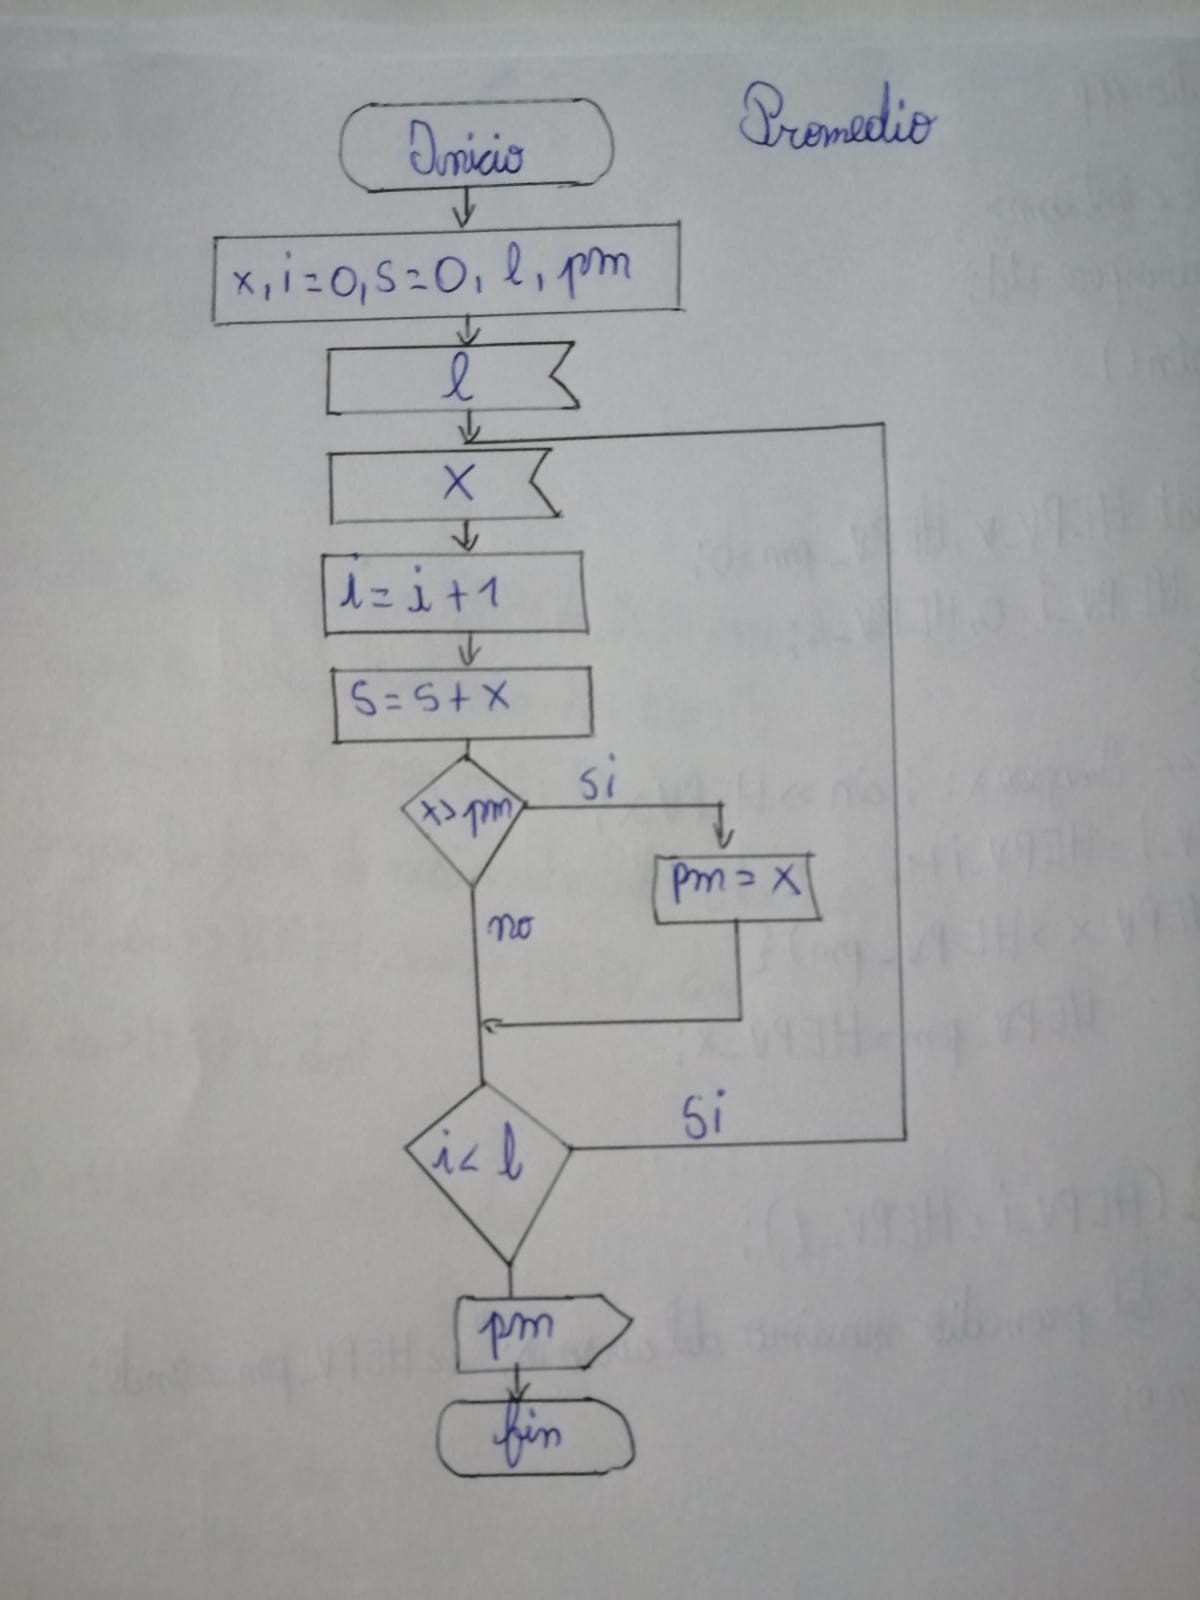 Promedio
Inicio
x, i=0, s=0, l, pm
l
x
i = i + 1
s = s + x
x > pm
si
pm = x
no
i < l
si
pm
fin